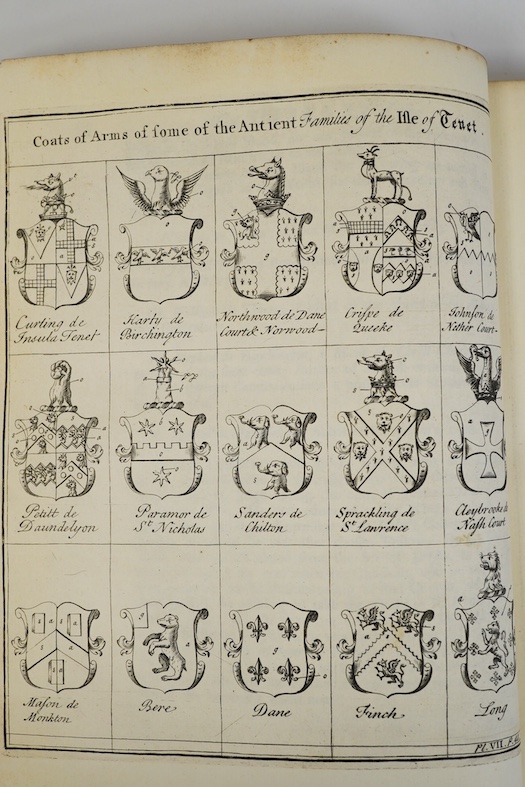 Coats of Arms of ſome of the Antient Families of the Iſle of Tenet.
Curling de
Inſula Tenet
Karty de
Birchington
Northwood de Dane
Court & Norwood
Criſpe de
Queeke
Johnſon de
Nether Court
Petitt de
Daundelyon
Paramor de
St. Nicholas
Sanders de
Chilton
Sprackling de
St. Lawrence
Cleybrooke de
Naſh Court
Maſon de
Monkton
Bere
Dane
Finch
Long
Pl. VII.